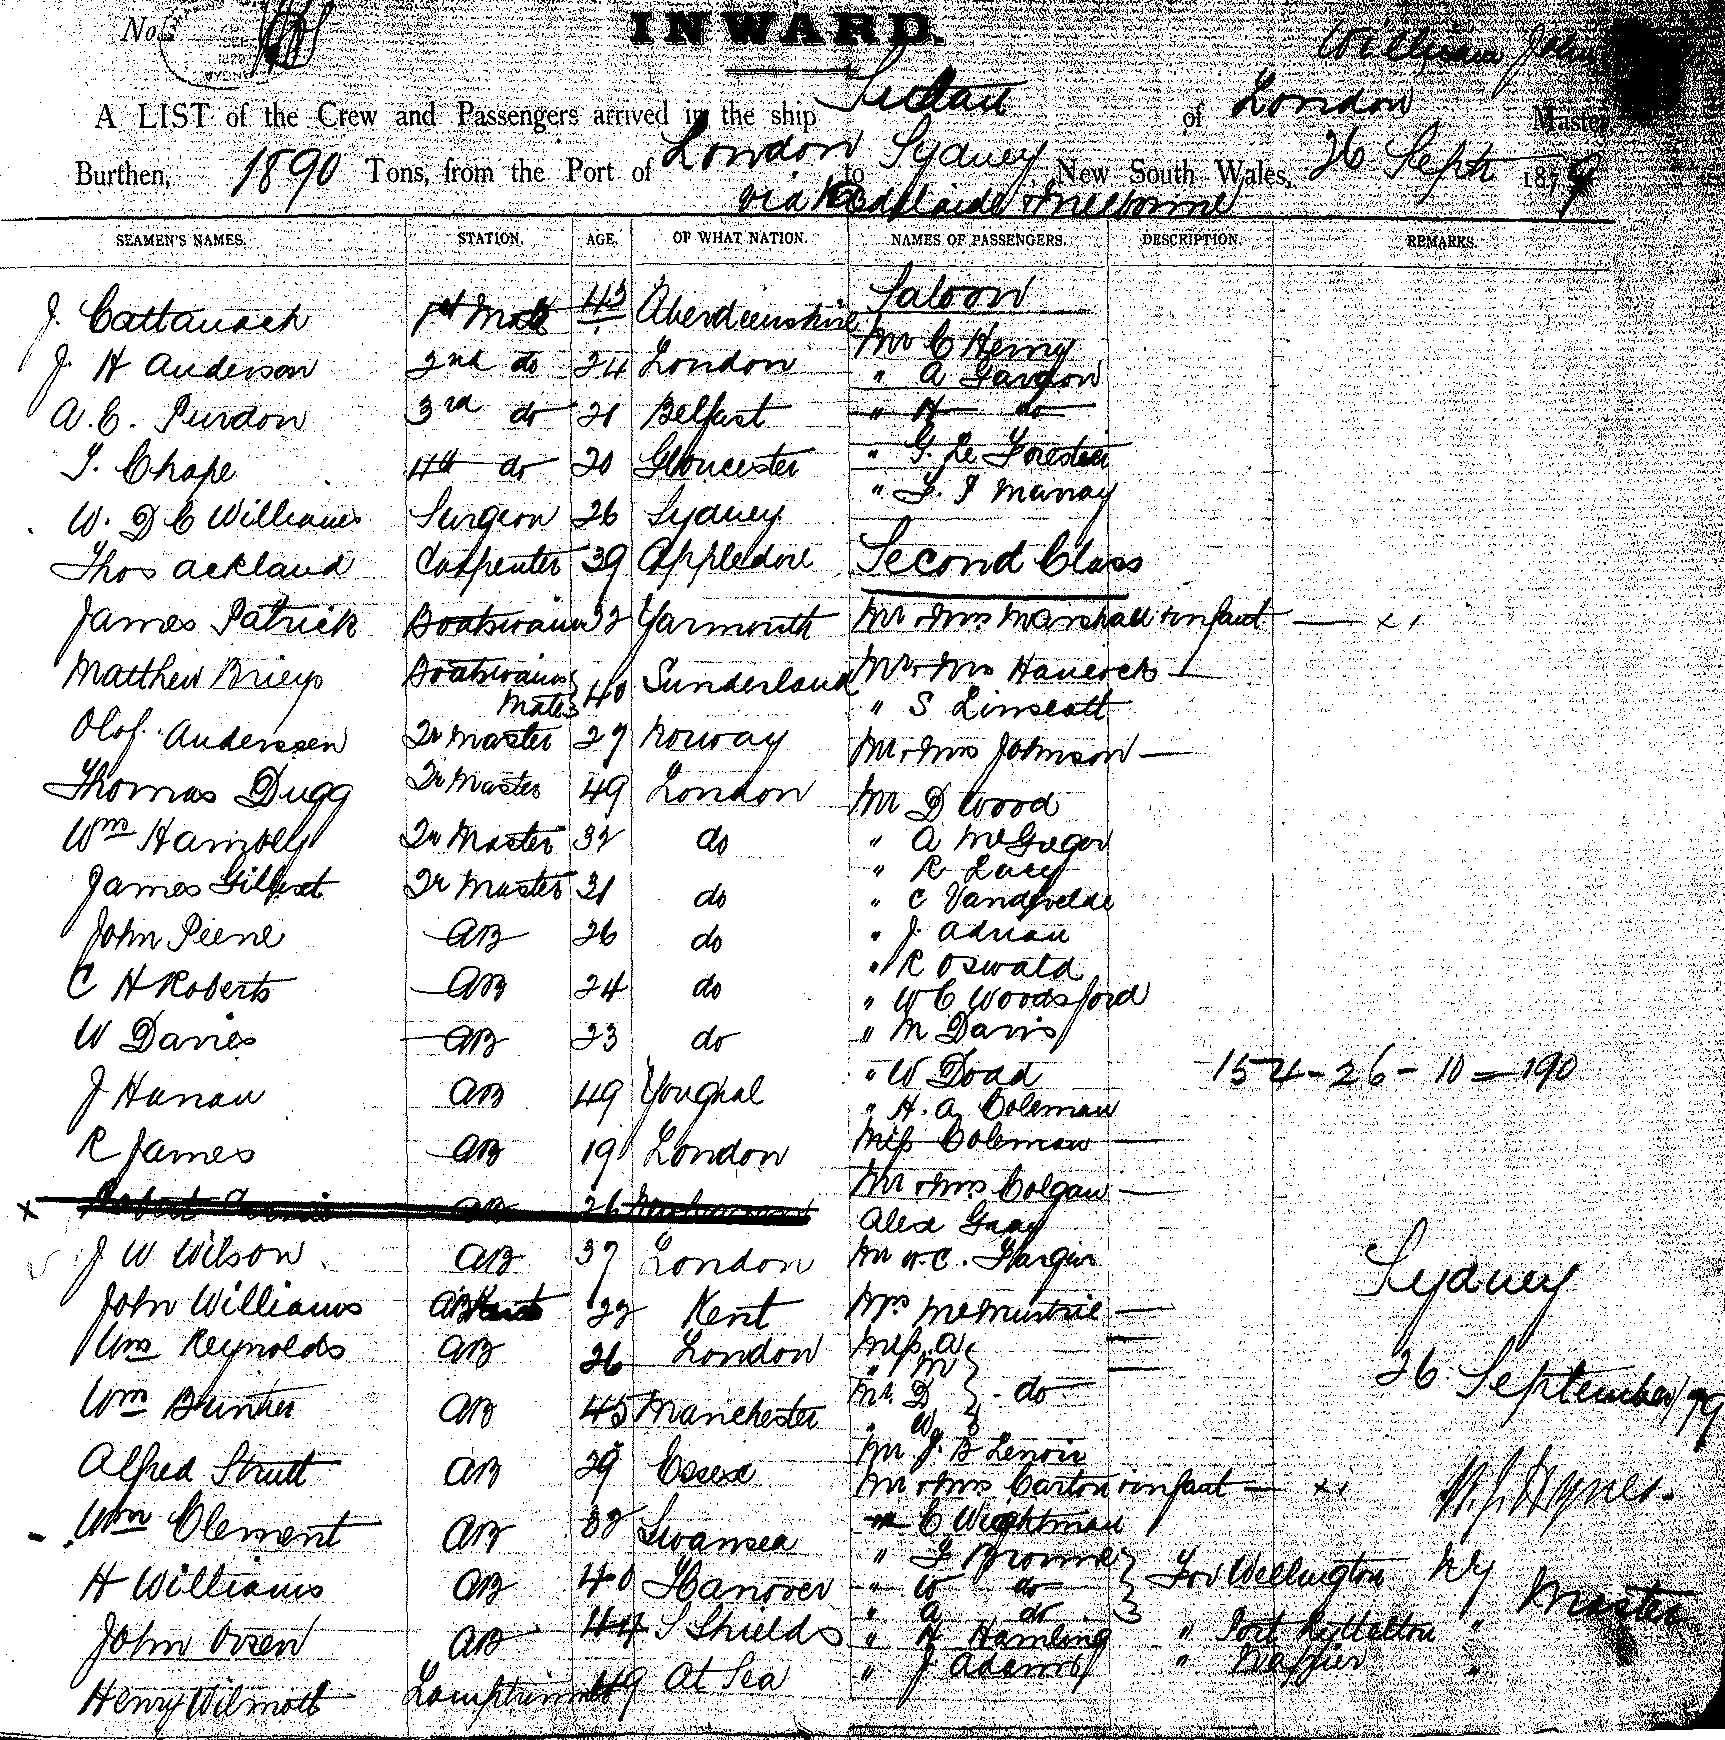 No.
INWARD.
William John
A LIST of the Crew and Passengers arrived in the ship of London Master
Burthen, 1890 Tons, from the Port of London to Sydney New South Wales, 26 Septr 1879
via Adelaide & Melbourne
SEAMEN'S NAMES. STATION. AGE. OF WHAT NATION. NAMES OF PASSENGERS. DESCRIPTION. REMARKS.
J. Cattanach 1st Mate 43 Aberdeenshire Saloon
Mr C Henry
J. H Anderson 2nd do 24 London " A
A. C. Purdon 3rd do 21 Belfast " H do
T. Chape 4th do 20 Gloucester " G. Le Forestier
W. D C Williams Surgeon 26 Sydney " F. J Murray
Thos Ackland Carpenter 39 Appledore Second Class
James Patrick Boatswain 32 Yarmouth Mr & Mrs Marshall & infant
Matthew Boatswains Mate 40 Sunderland Mr & Mrs Hancock
" S Linscott
Olof Anderssen Qr Master 27 Norway Mr & Mrs Johnson
Thomas Dugg Qr Master 49 London Mr D Wood
Wm Hambly Qr Master 32 do " A McGregor
" R Lacy
James Gilbert Qr Master 31 do " C Vandevelde
John Peene AB 26 do " J. Adrian
" R Oswald
C H Roberts AB 24 do " W C Woodsford
W Davies AB 23 do " M Davis
" W Dodd 154 - 26 - 10 = 190
J Hanan AB 49 Youghal " H. A. Coleman
R James AB 19 London Miss Coleman
Mr & Mrs Colgan
x Robert AB 26 Alex Gray
J W Wilson AB 37 London Mr W. C.
Sydney
John Williams AB 22 Kent Mrs McMurtrie
Wm Reynolds AB 26 London Miss A
" M
26 September/79
Wm Bunter AB 45 Manchester Mr D } do
" W
Mr J. B Lenoir
Alfred Strutt AB 29 Essex Mr & Mrs Carton & infant
Wm Clement AB 32 Swansea " C Wightman
" F Browne } For Wellington NZ
H Williams AB 40 Hanover " W do
" A do
Master
John AB 44 S Shields " H Hamling " Port Lyttelton "
Henry Wilmott Lamptrimmer 49 At Sea " J Adams " Napier "